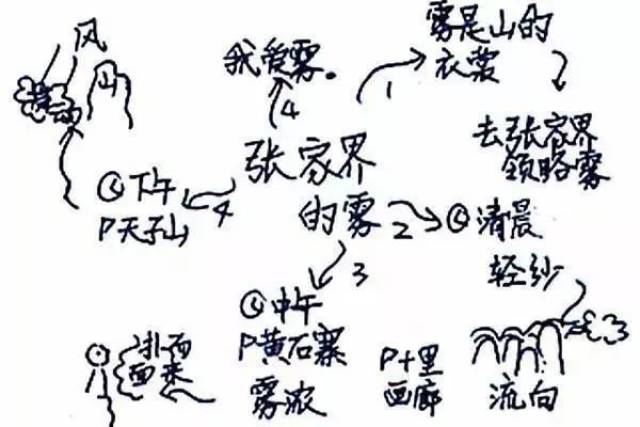 风
山
我爱雾。
4
1
雾是山的
衣裳
去张家界
领略雾
张家界
的雾
2
清晨
轻纱
P十里
画廊
流向
3
中午
P黄石寨
雾浓
面来
4
下午
P天子山